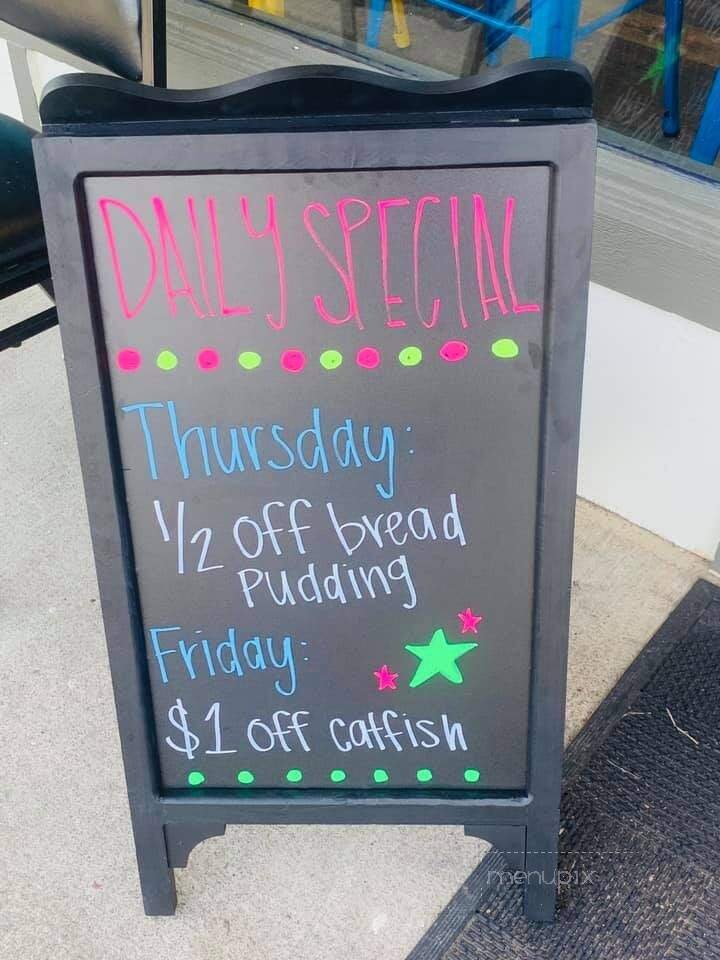 DAILY SPECIAL
Thursday:
1/2 off bread
pudding
Friday:
$1 off catfish
menupix